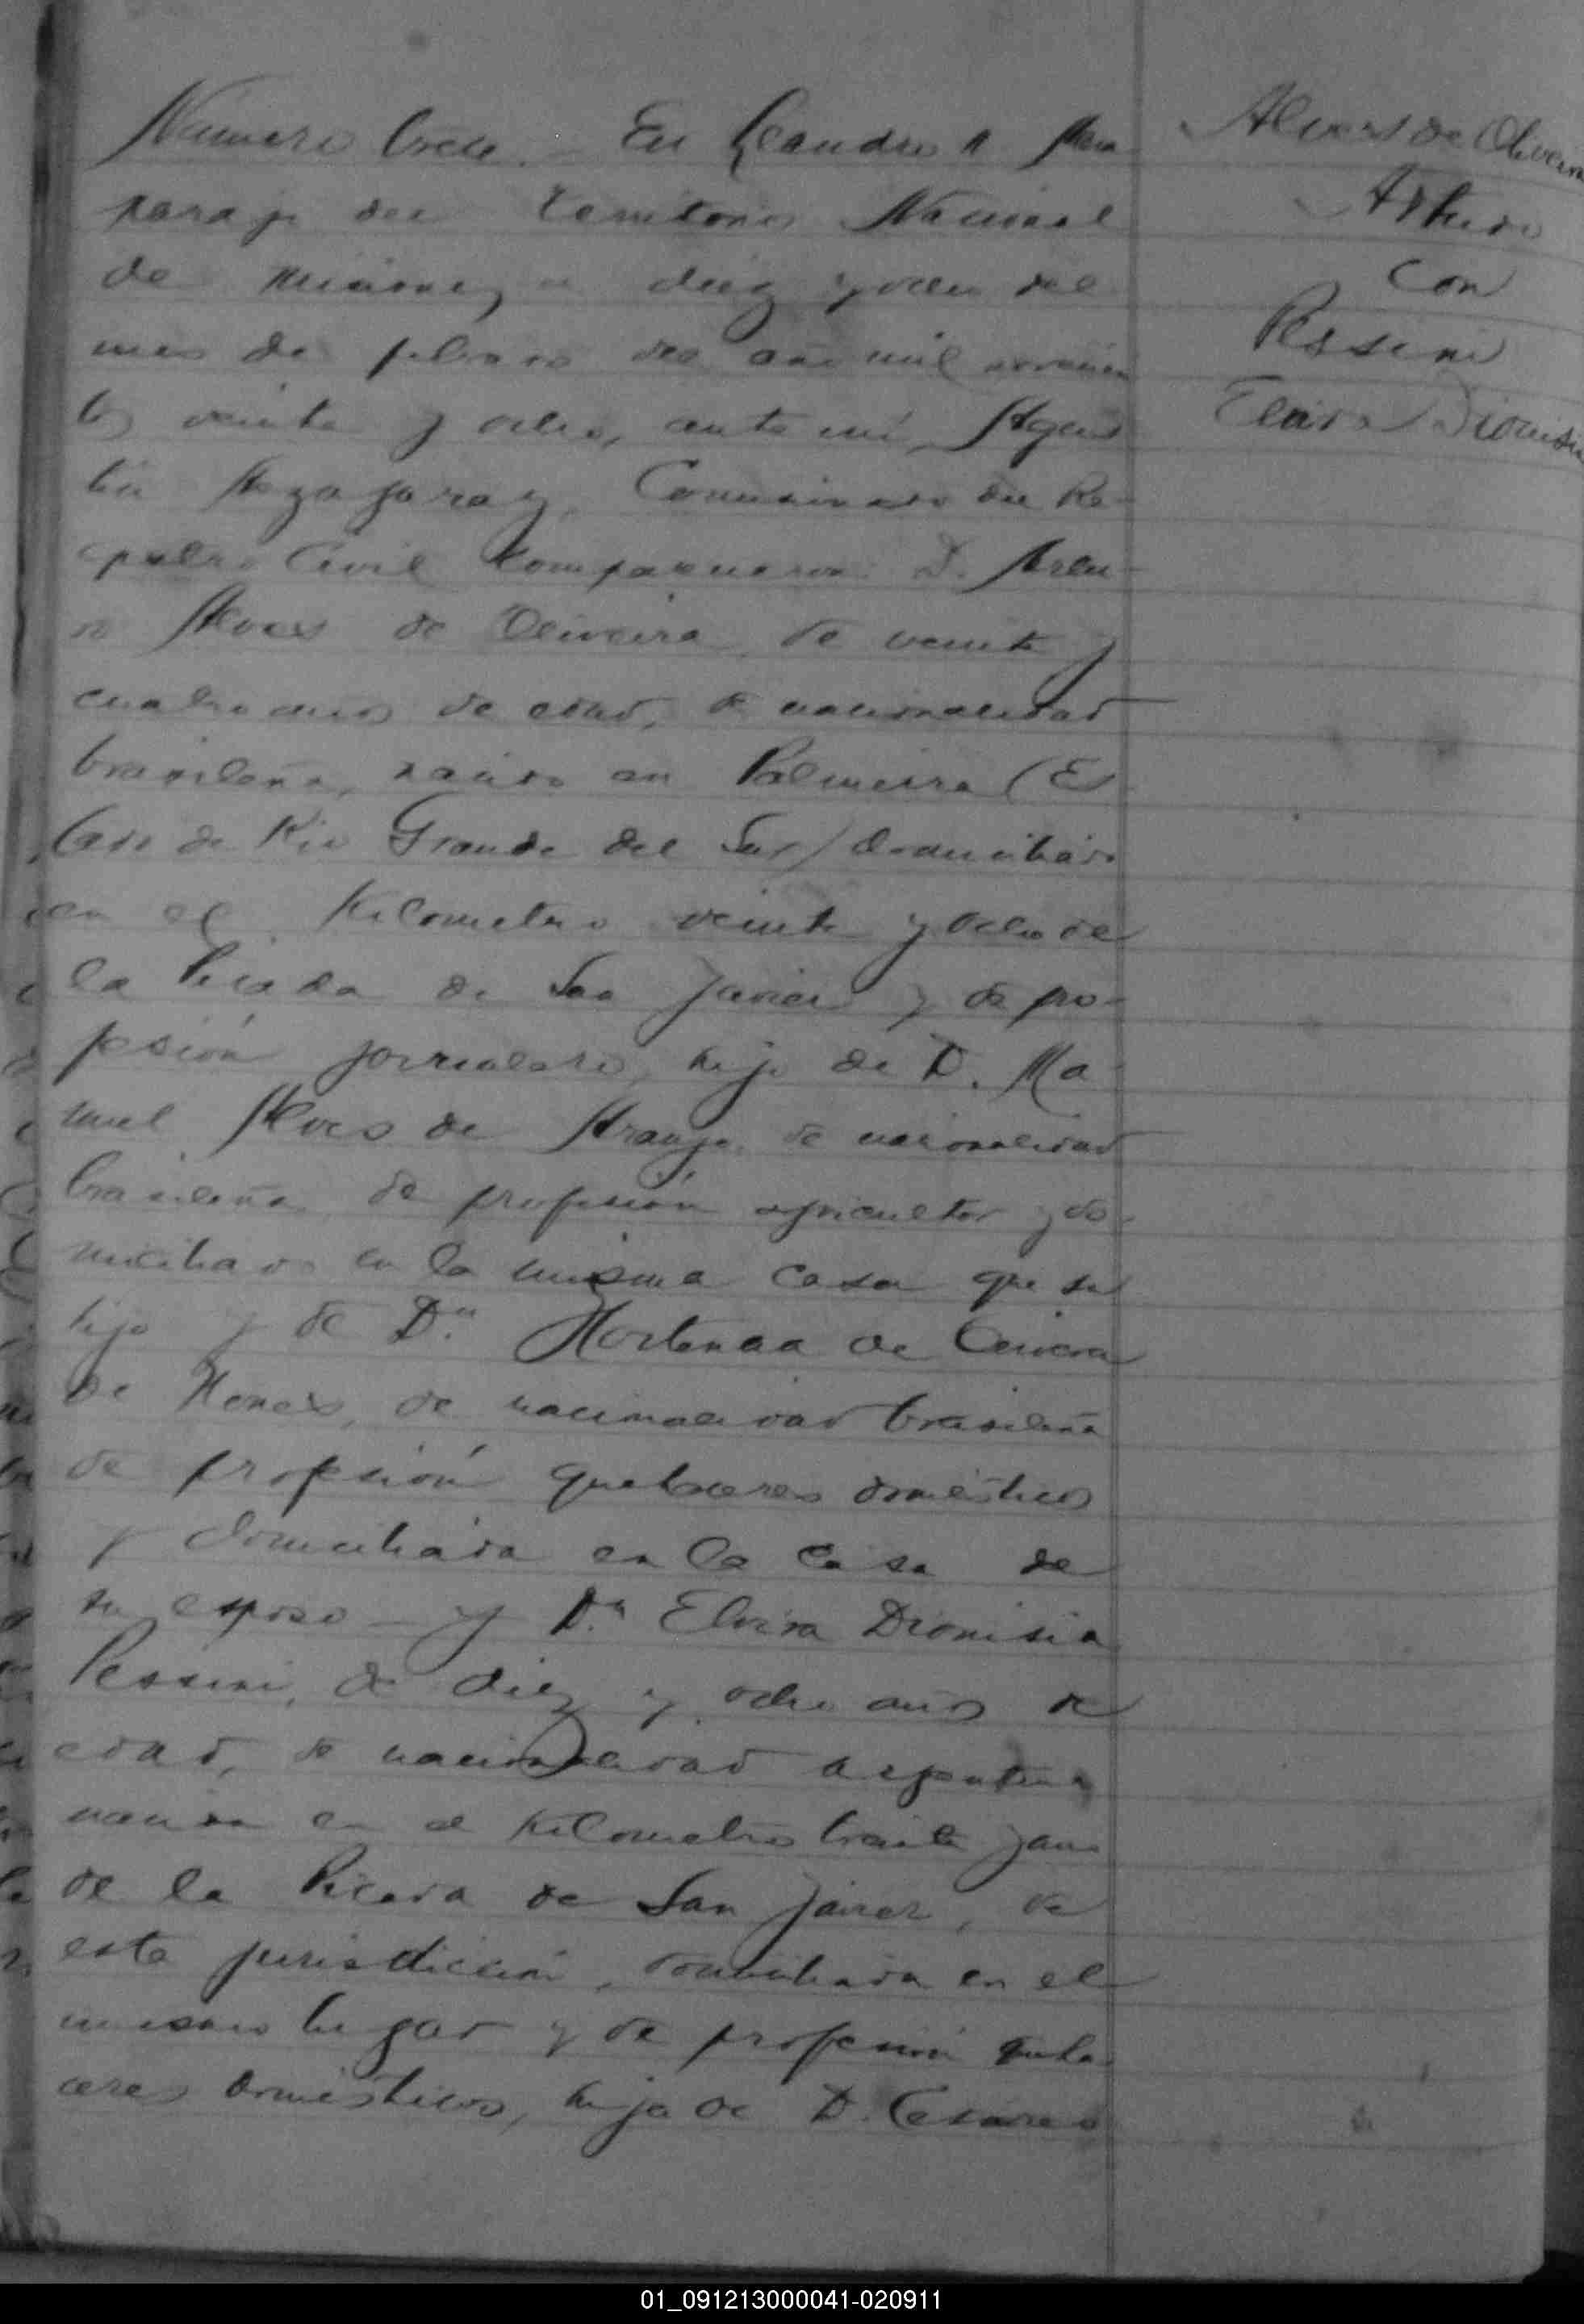 Número trece. – En Leandro N Alem
paraje del territorio Nacional
de Misiones, a diez y ocho del
mes de febrero del año mil novecien
tos veinte y ocho, ante mí, Agus
tín Azagaray, Comisionado del Re-
gistro Civil comparecieron: D. Artu-
ro Alves de Oliveira, de veinte y
cuatro años de edad, de nacionalidad
brasileña, nacido en Palmeira (Es
tado de Rio Grande del Sur) domiciliado
en el Kilometro veinte y ocho de
la Picada de San Javier y de pro-
fesión jornalero, hijo de D. Ma-
nuel Alves de Araujo, de nacionalidad
brasileña, de profesión agricultor y do-
miciliado en la misma casa que su
hijo y de Dª Hortensa de
de de nacionalidad brasileña
de profesión quehaceres domésticos
y domiciliada en la casa de
su esposo – y Dª Elvira Dionisia
Pessini, de diez y ocho años de
edad, de nacionalidad argentina
nacida en el Kilometro treinta y
de la Picada de San Javier, de
esta jurisdicción, domiciliada en el
mismo lugar y de profesión queha
ceres domésticos, hija de D. Cesareo
Alves de Oliveira
Arturo
con
Pessini
Elvira Dionisia
01_091213000041-020911